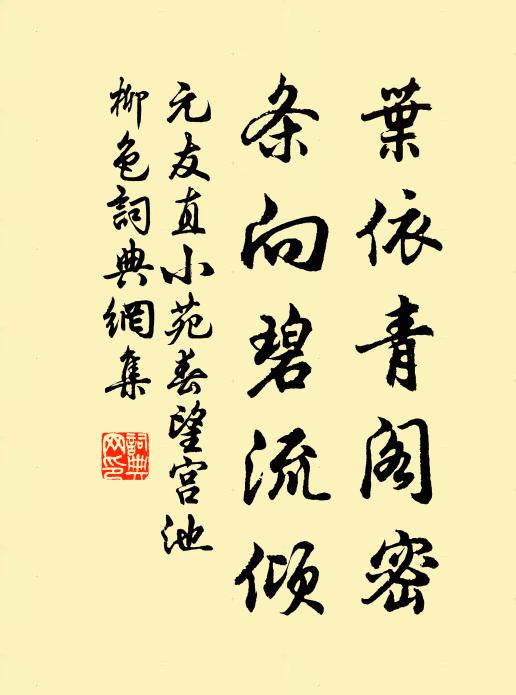 葉依青阁密
条向碧流倾
元友直小苑春望宫池
柳色詞典網集
詞典網印